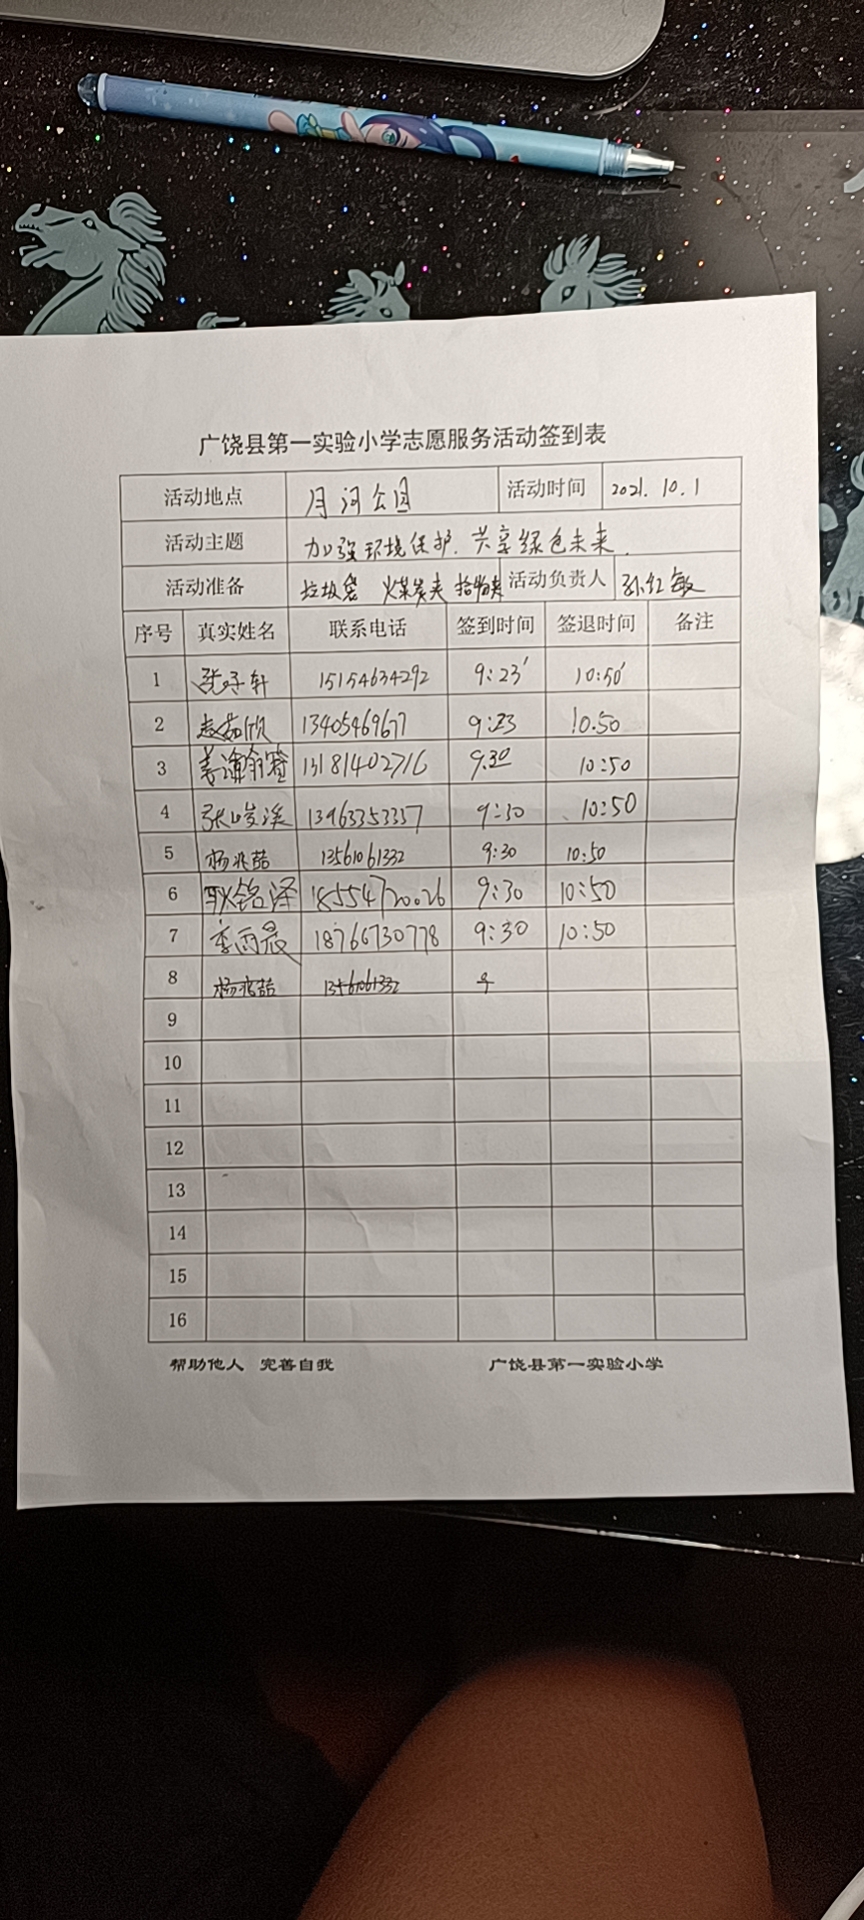 广饶县第一实验小学志愿服务活动签到表
活动地点 月河公园 活动时间 2021.10.1
活动主题 加强环境保护.共享绿色未来.
活动准备 垃圾袋 火煤炭夹 拾物夹 活动负责人 孙红敏
序号 真实姓名 联系电话 签到时间 签退时间 备注
1 张子轩 15154634292 9:23' 10:50'
2 13405469677 9:23 10.50
3 13181402716 9.30 10:50
4 张峻溪 13963353337 9:30 10:50
5 杨兆喆 13561061332 9:30 10:50
6 耿铭泽 18554720026 9:30 10:50
7 李雨晨 18766730778 9:30 10:50
8 杨兆喆 13561061332
9
10
11
12
13
14
15
16
帮助他人 完善自我 广饶县第一实验小学